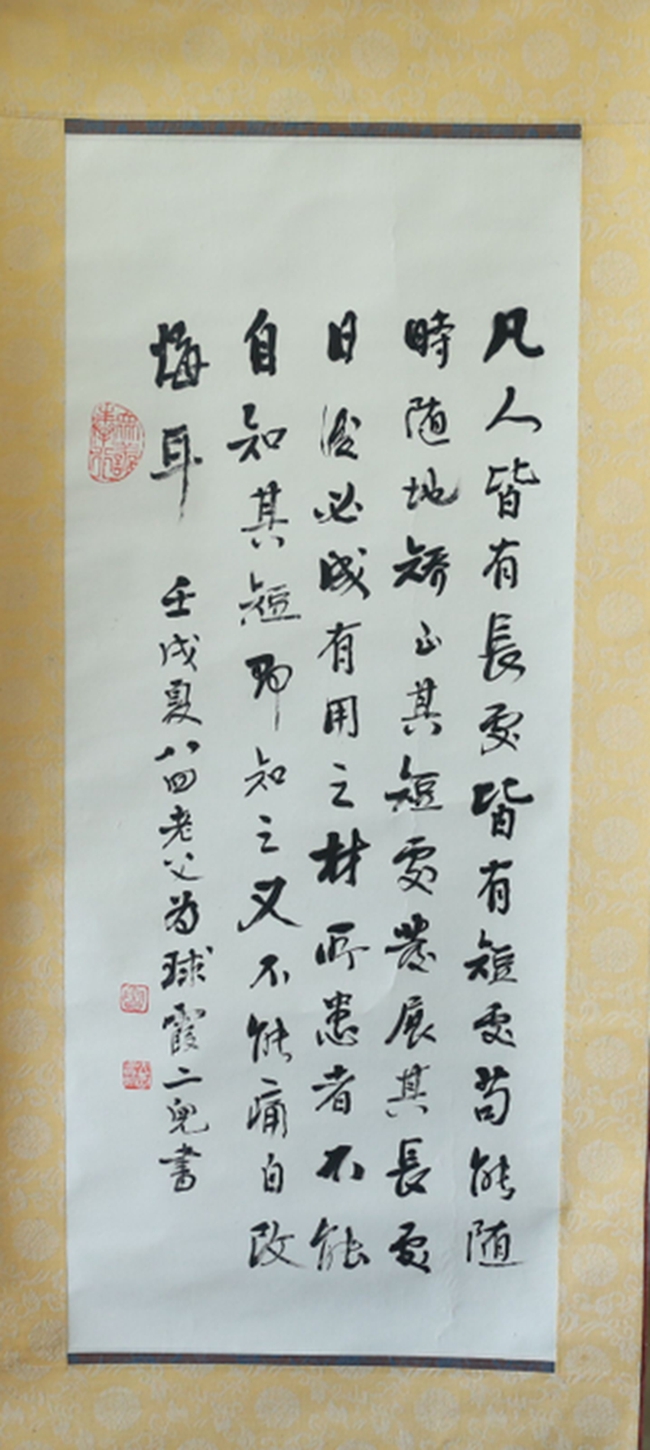 凡人皆有長處皆有短處苟能隨
時隨地矯正其短處發展其長處
日後必成有用之材所患者不能
自知其短即知之又不能痛自改
悔耳
壬戌夏八四老父為球霞二兒書